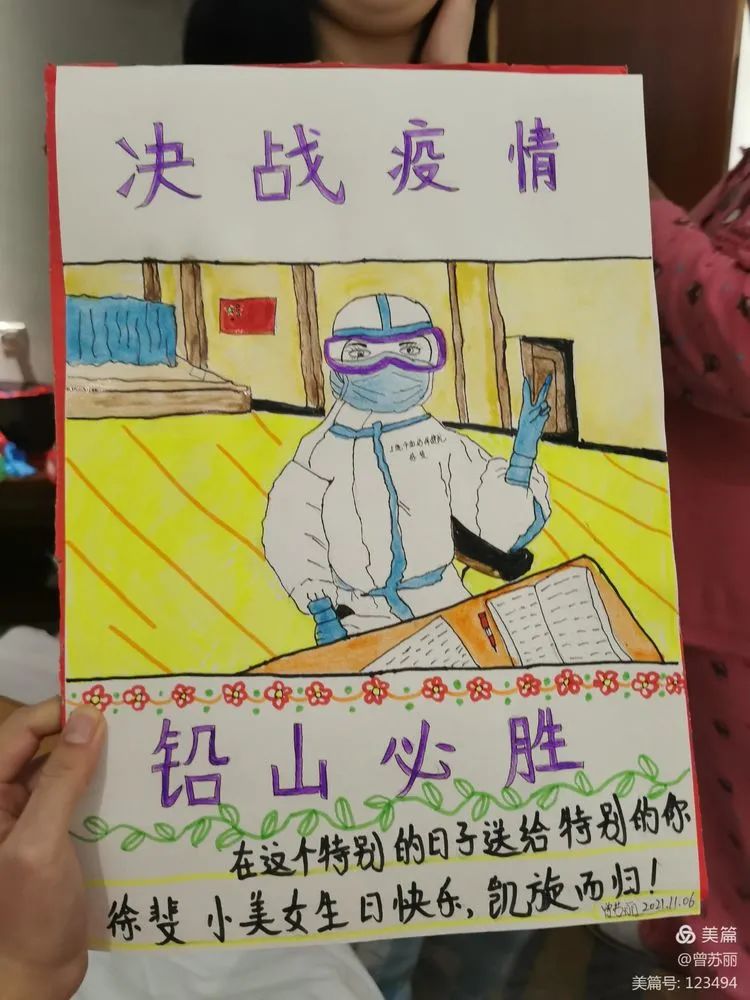 决战疫情
铅山必胜
在这个特别的日子送给特别的你
徐斐 小美女生日快乐,凯旋而归!
2021.11.06
美篇
@曾苏丽
美篇号: 123494